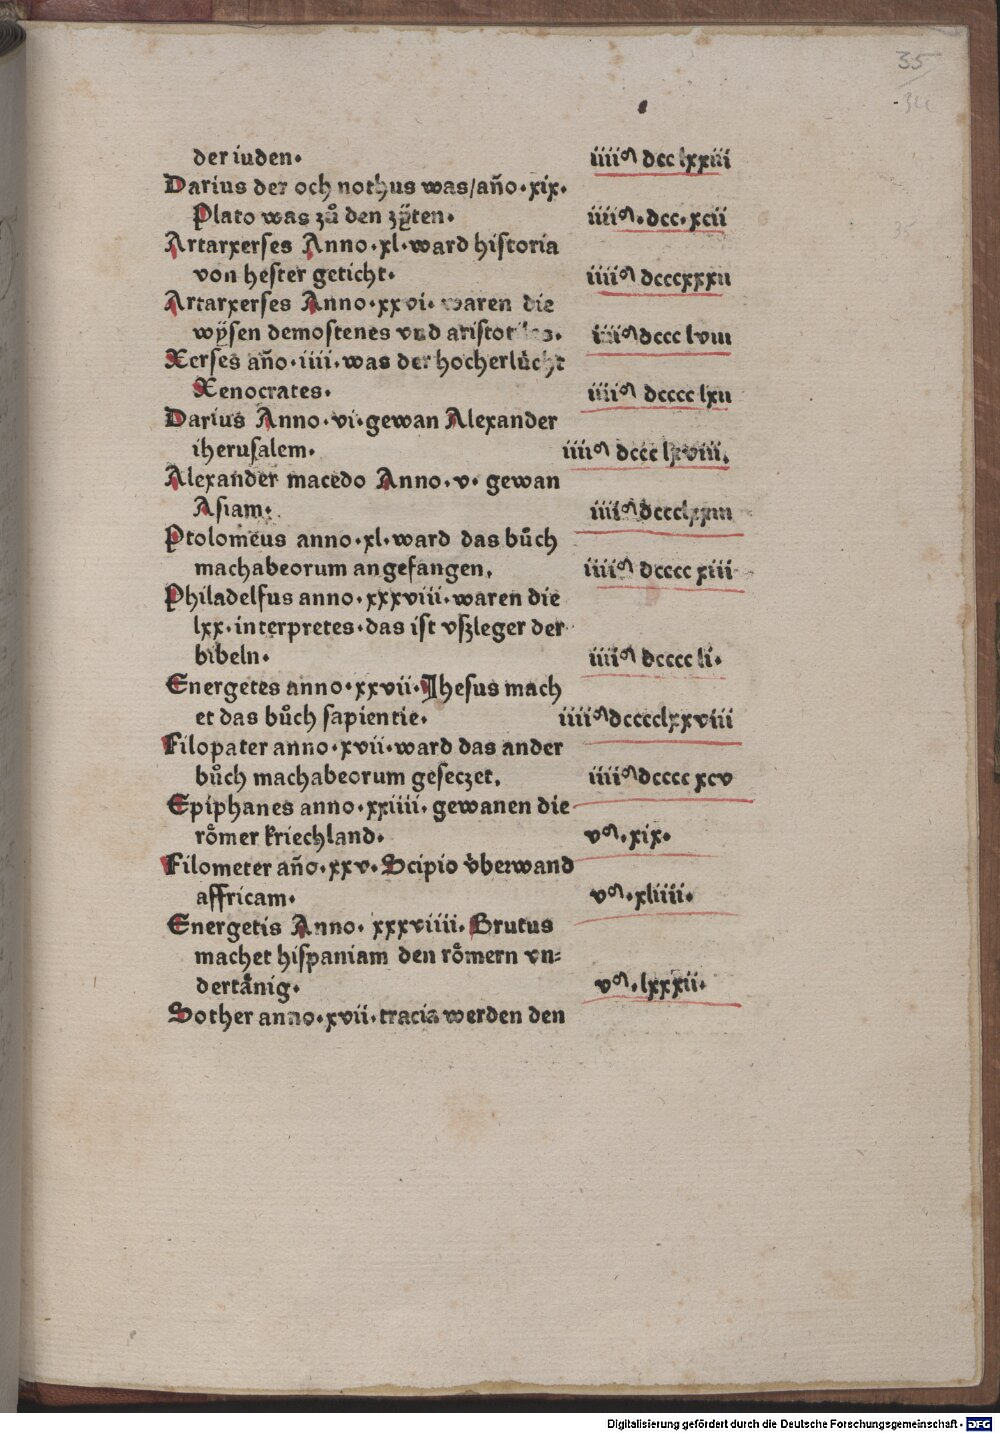 35
34
der iuden. iiiiᵐ dcc lxxiii
Darius der och nothus was/an̄o.xix.
Plato was zuͦ den zÿten. iiiiᵐ.dcc.xcii
Artarxerses Anno.xl.ward historia
von hester geticht. iiiiᵐ dcccxxxii
Artarxerses Anno.xxvi.waren die
wÿsen demostenes vnd aristotiles. iiiiᵐ dccc lviii
Xerses an̄o.iiii.was der hocherluͤcht
Xenocrates. iiiiᵐ dcccc lxii
Darius Anno.vi.gewan Alexander
iherusalem. iiiiᵐ dccc lxviii.
Alexander macedo Anno.v.gewan
Asiam. iiiiᵐ dccclxxiii
Ptolomeus anno.xl.ward das buͦch
machabeorum angefangen. iiiiᵐ dcccc xiii
Philadelfus anno.xxxviii.waren die
lxx.interpretes.das ist vszleger der
bibeln. iiiiᵐ dcccc li.
Energetes anno.xxvii.Jhesus mach
et das buͦch sapientie. iiiiᵐ dcccclxxviii
Filopater anno.xvii.ward das ander
buͦch machabeorum geseczet. iiiiᵐ dcccc xcv
Epiphanes anno.xxiiii.gewanen die
roͤmer kriechland. vᵐ.xix.
Filometer an̄o.xxv.Scipio v̈berwand
affricam. vᵐ.xliiii.
Energetis Anno.xxxviiii.Brutus
machet hispaniam den roͤmern vn=
dertaͤnig. vᵐ.lxxxii.
Sother anno.xvii.tracia werden den
Digitalisierung gefördert durch die Deutsche Forschungsgemeinschaft - DFG